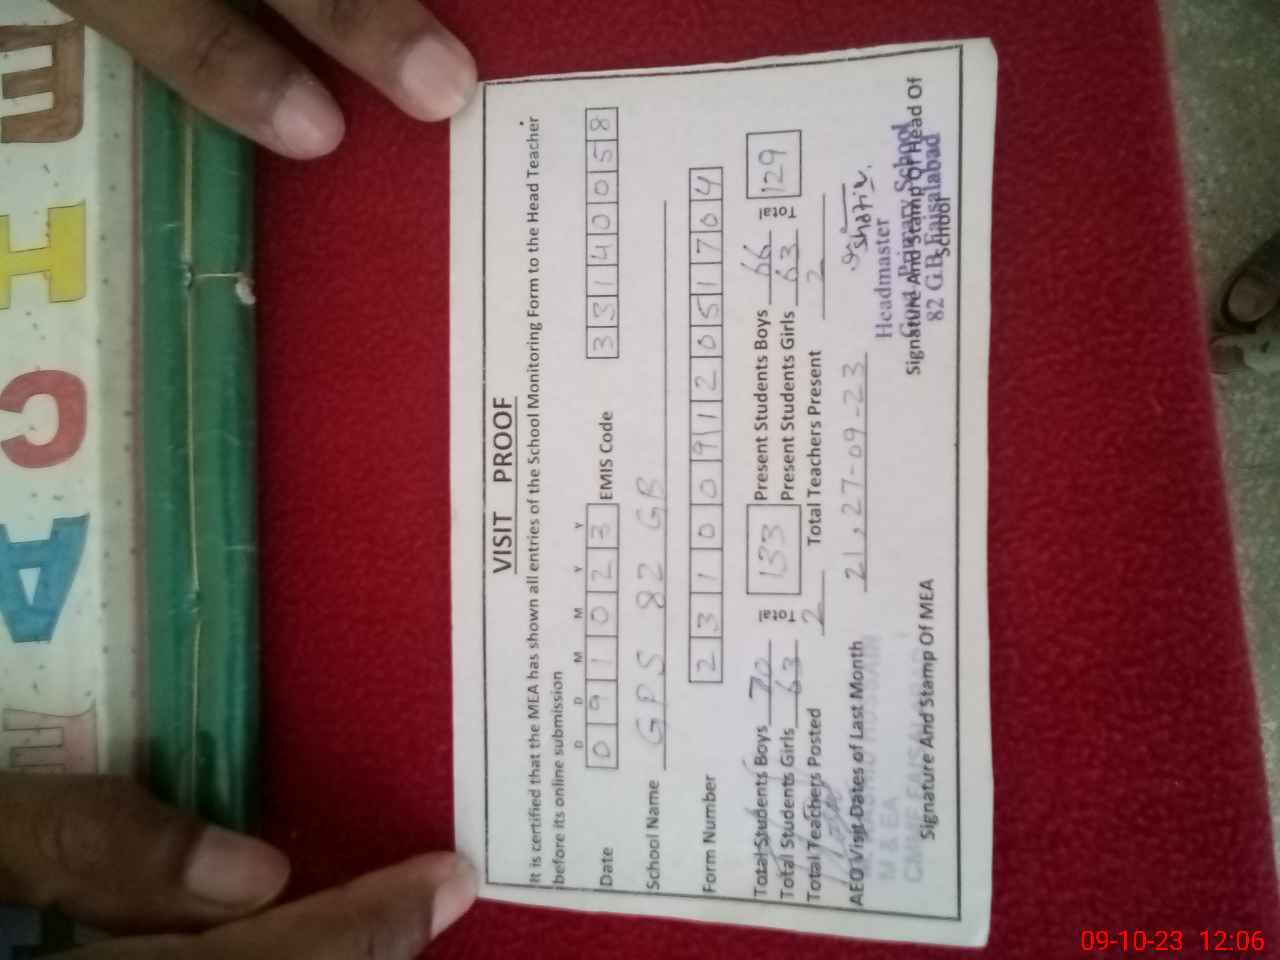 VISIT PROOF
It is certified that the MEA has shown all entries of the School Monitoring Form to the Head Teacher
before its online submission
D D M M Y Y
Date 0 9 1 0 2 3 EMIS Code 3 3 1 4 0 0 5 8
School Name GPS 82 GB
Form Number 2 3 1 0 0 9 1 2 0 5 1 7 0 4
Total Students Boys 70 Total 133 Present Students Boys 66 Total 129
Total Students Girls 63 Present Students Girls 63
Total Teachers Posted 2 Total Teachers Present 2
AEO Visit Dates of Last Month 21, 27-09-23
Shafiq
Headmaster
Govt. Primary School
82 G.B Faisalabad
M & EA
Signature And Stamp Of MEA
Signature And Stamp Of Head Of
School
E
H
C
A
09-10-23 12:06